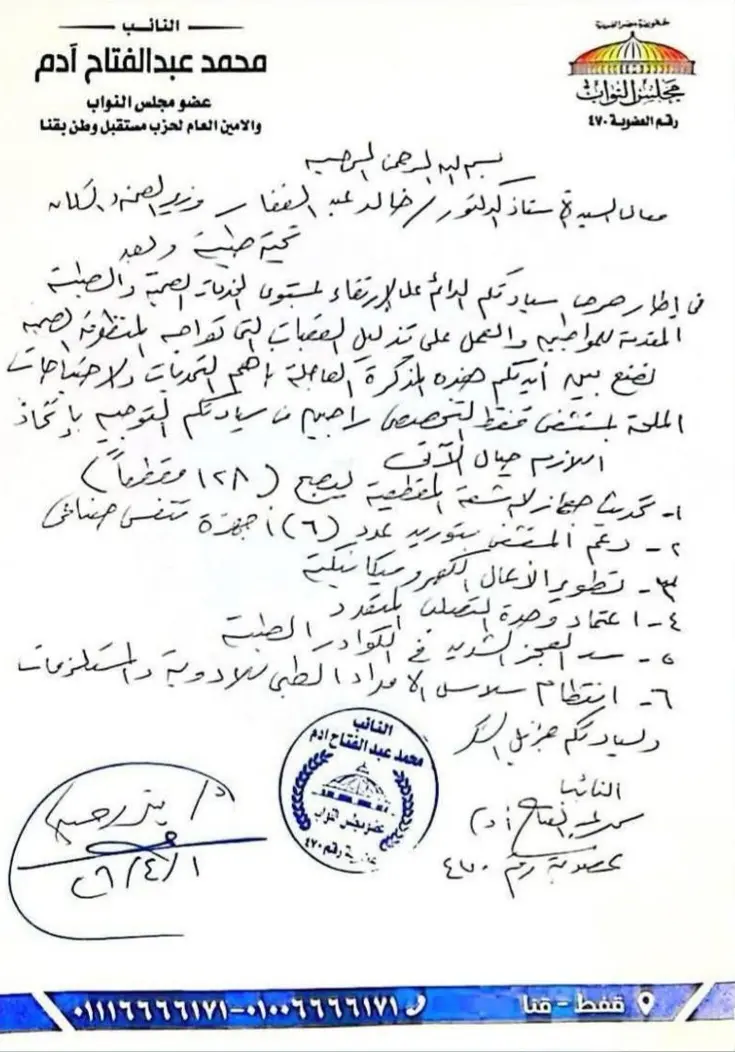 النائب
محمد عبدالفتاح آدم
عضو مجلس النواب
والامين العام لحزب مستقبل وطن بقنا
جمهورية مصر العربية
مجلس النواب
رقم العضوية ٤٧٠
بسم الله الرحمن الرحيم
معالى السيد الأستاذ الدكتور / خالد عبد الغفار وزير الصحة والسكان
تحية طيبة وبعد
فى إطار حرص سيادتكم الدائم على الإرتقاء بمستوى الخدمات الصحية والطبية
المقدمة للمواطنين والعمل على تذليل العقبات التى تواجه المنظومة الصحية
نضع بين أيديكم هذه المذكرة العاجلة بأهم التحديات والاحتياجات
الملحة لمستشفى قفط التخصصى راجين من سيادتكم التوجيه بإتخاذ
اللازم حيال الآتى
١- تحديث جهاز الاشعة المقطعية ليصبح (١٢٨ مقطعاً)
٢- دعم المستشفى بتوريد عدد (٦) أجهزة تنفس صناعى
٣- تطوير الأعمال الكهروميكانيكية
٤- اعتماد وحدة
٥- سد العجز الشديد فى الكوادر الطبية
٦- انتظام سلاسل الامداد الطبى للادوية والمستلزمات
ولسيادتكم جزيل الشكر
النائب
محمد عبد الفتاح آدم
عضوية رقم ٤٧٠
النائب
محمد عبد الفتاح آدم
عضو مجلس النواب
عضوية رقم ٤٧٠
٢٦/٤/١
قفط - قنا
٠١١١٦٦٦٦١٧١-٠١٠٠٦٦٦٦١٧١